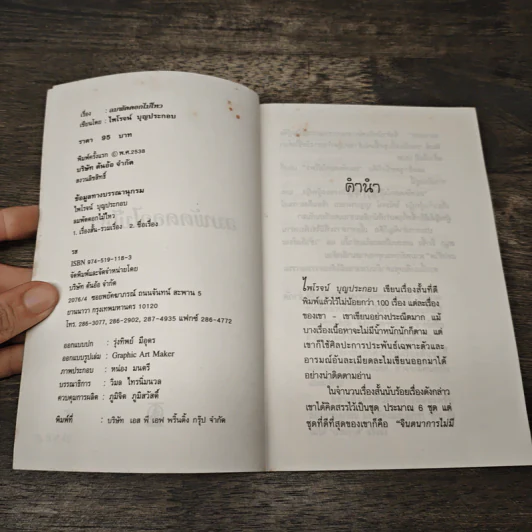 เรื่อง : ลมพัดดอกไม้ไหว
เขียนโดย : ไพโรจน์ บุญประกอบ
ราคา 95 บาท
พิมพ์ครั้งแรก © พ.ศ.2538
บริษัท ต้นอ้อ จำกัด
สงวนลิขสิทธิ์
ข้อมูลทางบรรณานุกรม
ไพโรจน์ บุญประกอบ
ลมพัดดอกไม้ไหว
1. เรื่องสั้น-รวมเรื่อง 2. ชื่อเรื่อง
ISBN 974-519-118-3
จัดพิมพ์และจัดจำหน่ายโดย
บริษัท ต้นอ้อ จำกัด
2076/4 ซอยพยัคฆาภรณ์ ถนนจันทน์ สะพาน 5
ยานนาวา กรุงเทพมหานคร 10120
โทร. 286-3077, 286-2902, 287-4935 แฟกซ์ 286-4772
ออกแบบปก : รุ่งทิพย์ มีอุดร
ออกแบบรูปเล่ม : Graphic Art Maker
ภาพประกอบ : หน่อง มนตรี
บรรณาธิการ : วิมล ไทรนิ่มนวล
ควบคุมการผลิต : ภูมิจิต ภูมิสวัสดิ์
พิมพ์ที่ : บริษัท เอส พี เอฟ พริ้นติ้ง กรุ๊ป จำกัด
คำนำ
ไพโรจน์ บุญประกอบ เขียนเรื่องสั้นที่ตี
พิมพ์แล้วไว้ไม่น้อยกว่า 100 เรื่อง แต่ละเรื่อง
ของเขา - เขาเขียนอย่างประณีตมาก แม้
บางเรื่องเนื้อหาจะไม่มีน้ำหนักนักก็ตาม แต่
เขาก็ใช้ศิลปะการประพันธ์เฉพาะตัวและ
อารมณ์อันละเมียดละไมเขียนออกมาได้
อย่างน่าติดตามอ่าน
ในจำนวนเรื่องสั้นนับร้อยเรื่องดังกล่าว
เขาได้คัดสรรไว้เป็นชุด ประมาณ 6 ชุด แต่
ชุดที่ดีที่สุดของเขาก็คือ “จินตนาการไม่มี